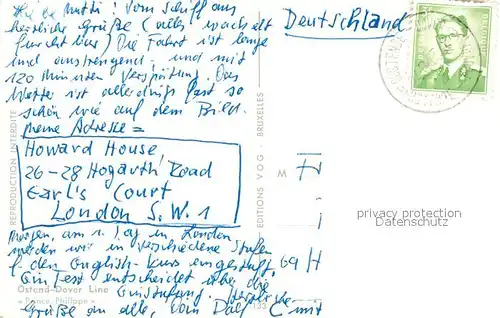 Deutschland
Liebe Mutti! Vom Schiff aus
herzliche Grüße (alles wackelt
furchtbar) Die Fahrt ist lange
und anstrengend, und mit
120 Minuten Verspätung. Das
Wetter ist allerdings fast so
schön wie auf dem Bild.
Meine Adresse =
Howard House
26-28 Hogarth Road
Earl's Court
London S.W.1
Morgen, am 1. Tag in London
werden wir in verschiedene Stufen
f. den Englisch-Kurs eingestuft,
Ein Test entscheidet über die
Einstufung. Herzliche
Grüße an alle, vom
REPRODUCTION INTERDITE
EDITIONS VOG - BRUXELLES
M
69 H
Ostend-Dover Line
« Prince Philippe »
133
privacy protection
Datenschutz